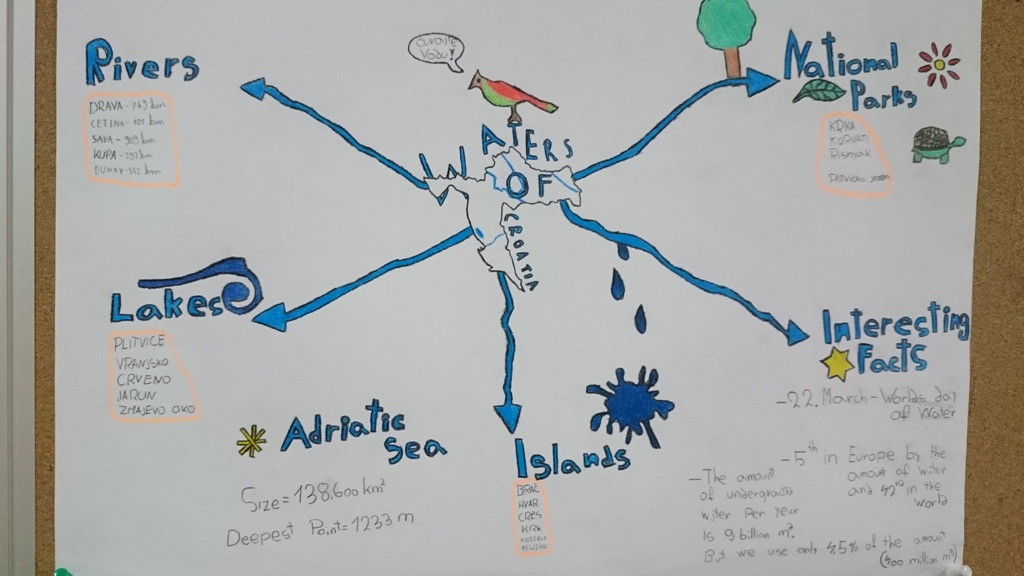 Čuvajte
Vodu!
WATERS
OF
CROATIA
Rivers
DRAVA - 749 km
CETINA - 101 km
SAVA - 909 km
KUPA - 297 km
DUNAV - km
National
Parks
KRKA
KORNATI
Risnjak
Plitvička
Lakes
PLITVICE
VRANJSKO
CRVENO
JARUN
ZMAJEVO OKO
Adriatic
Sea
Size = 138.600 km²
Deepest Point = 1233 m
Islands
BRAČ
HVAR
CRES
KRK
Interesting
Facts
- 22. March - Worlds day
of Water
- 5th in Europe by the
amout of water
and 42nd in the
world
- The amount
of undergroud
water per year
Is 9 billion m³.
But we use only 4.5% of the amount
(400 million m³)